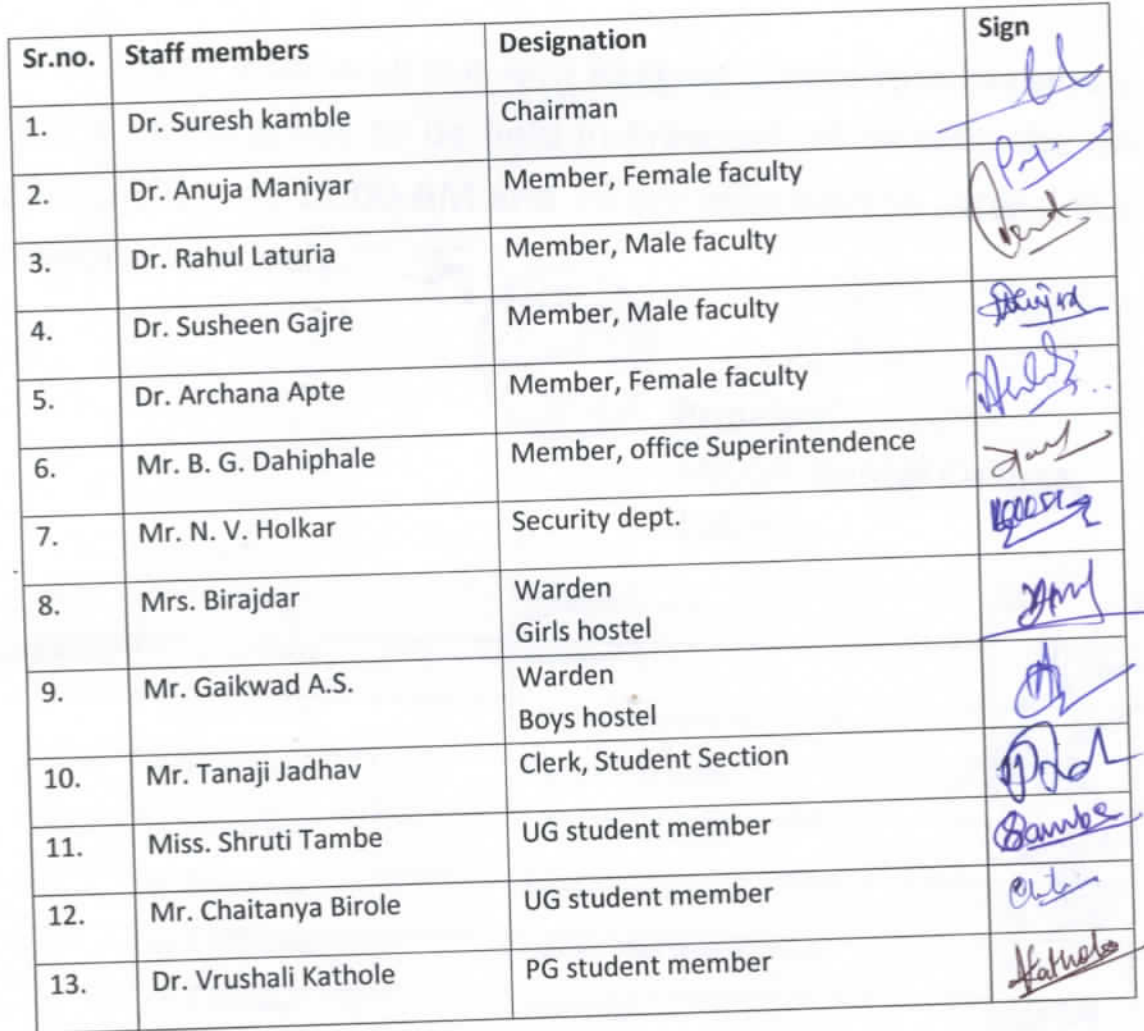 Sr.no. Staff members Designation Sign
1. Dr. Suresh kamble Chairman
2. Dr. Anuja Maniyar Member, Female faculty
3. Dr. Rahul Laturia Member, Male faculty
4. Dr. Susheen Gajre Member, Male faculty
5. Dr. Archana Apte Member, Female faculty
6. Mr. B. G. Dahiphale Member, office Superintendence
7. Mr. N. V. Holkar Security dept.
8. Mrs. Birajdar Warden
Girls hostel
9. Mr. Gaikwad A.S. Warden
Boys hostel
10. Mr. Tanaji Jadhav Clerk, Student Section
11. Miss. Shruti Tambe UG student member
12. Mr. Chaitanya Birole UG student member
13. Dr. Vrushali Kathole PG student member